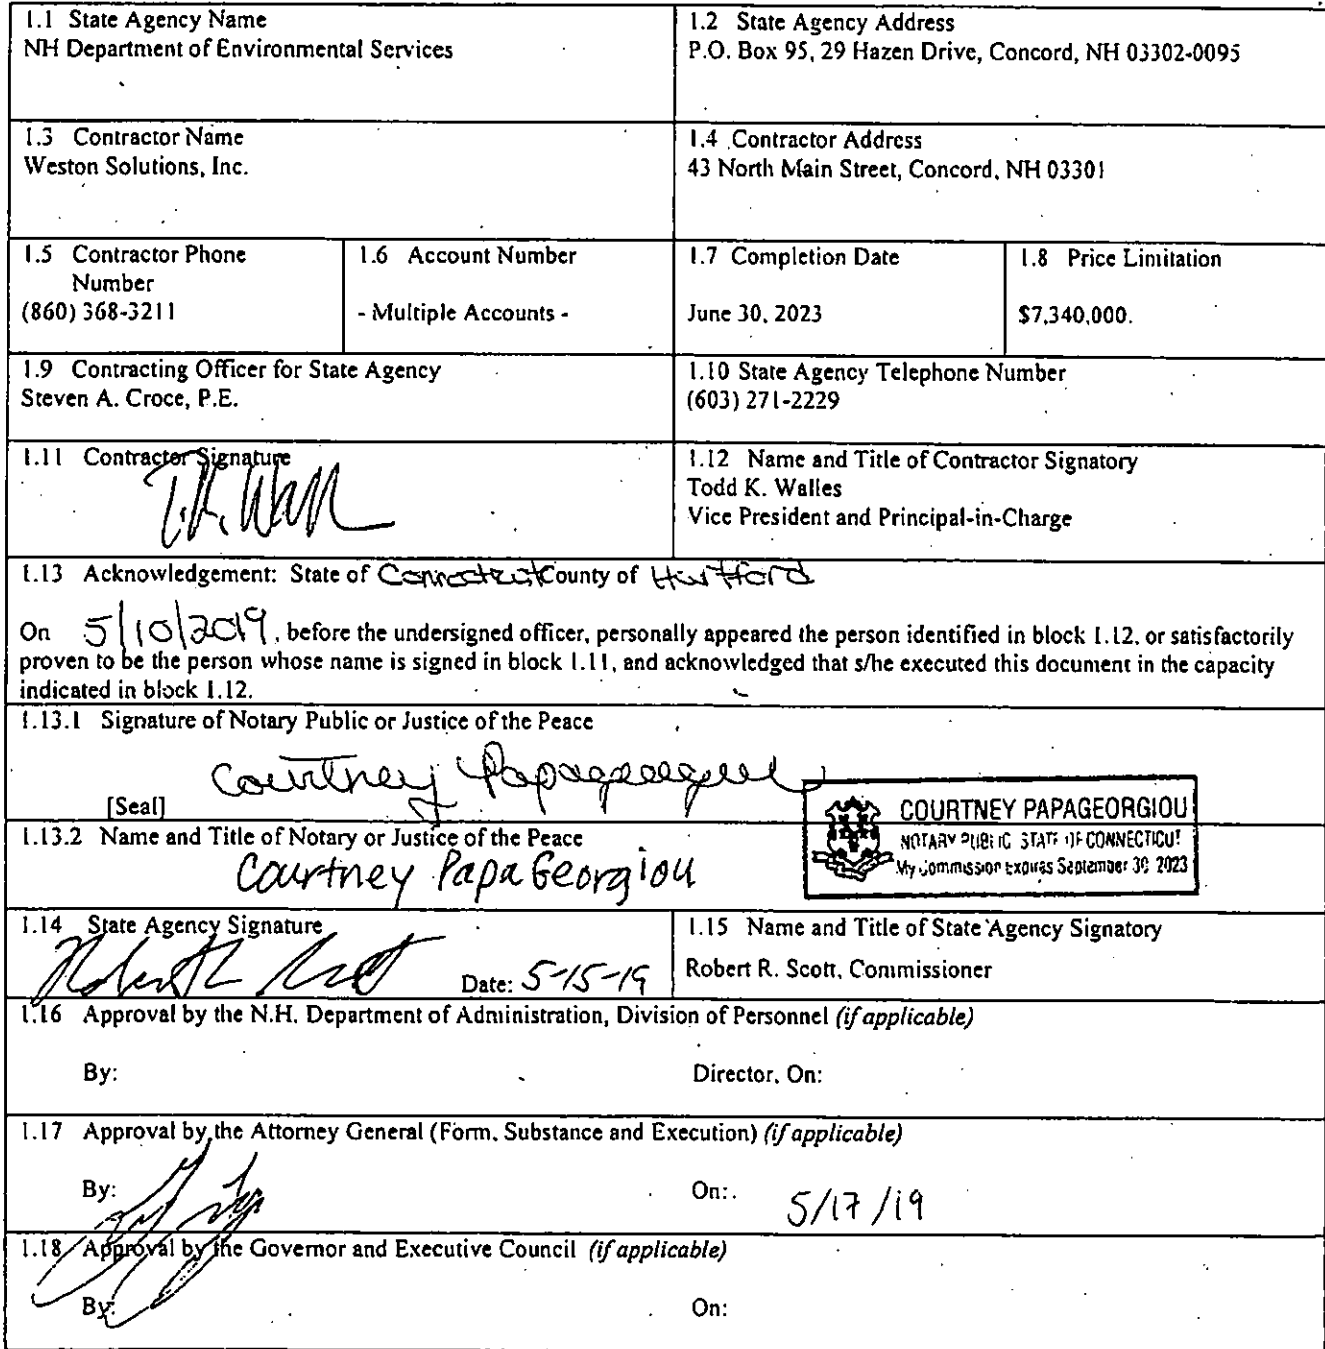 1.1 State Agency Name
NH Department of Environmental Services
1.2 State Agency Address
P.O. Box 95, 29 Hazen Drive, Concord, NH 03302-0095
1.3 Contractor Name
Weston Solutions, Inc.
1.4 Contractor Address
43 North Main Street, Concord, NH 03301
1.5 Contractor Phone
Number
(860) 368-3211
1.6 Account Number
- Multiple Accounts -
1.7 Completion Date
June 30, 2023
1.8 Price Limitation
$7,340,000.
1.9 Contracting Officer for State Agency
Steven A. Croce, P.E.
1.10 State Agency Telephone Number
(603) 271-2229
1.11 Contractor Signature
1.12 Name and Title of Contractor Signatory
Todd K. Walles
Vice President and Principal-in-Charge
1.13 Acknowledgement: State of Connecticut County of Hartford
On 5/10/2019, before the undersigned officer, personally appeared the person identified in block 1.12, or satisfactorily
proven to be the person whose name is signed in block 1.11, and acknowledged that s/he executed this document in the capacity
indicated in block 1.12.
1.13.1 Signature of Notary Public or Justice of the Peace
Courtney Papageorgiou
[Seal]
COURTNEY PAPAGEORGIOU
NOTARY PUBLIC STATE OF CONNECTICUT
My Commission Expires September 30, 2023
1.13.2 Name and Title of Notary or Justice of the Peace
Courtney PapaGeorgiou
1.14 State Agency Signature
Date: 5-15-19
1.15 Name and Title of State Agency Signatory
Robert R. Scott, Commissioner
1.16 Approval by the N.H. Department of Administration, Division of Personnel (if applicable)
By:
Director, On:
1.17 Approval by the Attorney General (Form, Substance and Execution) (if applicable)
By:
On: 5/17/19
1.18 Approval by the Governor and Executive Council (if applicable)
By:
On: